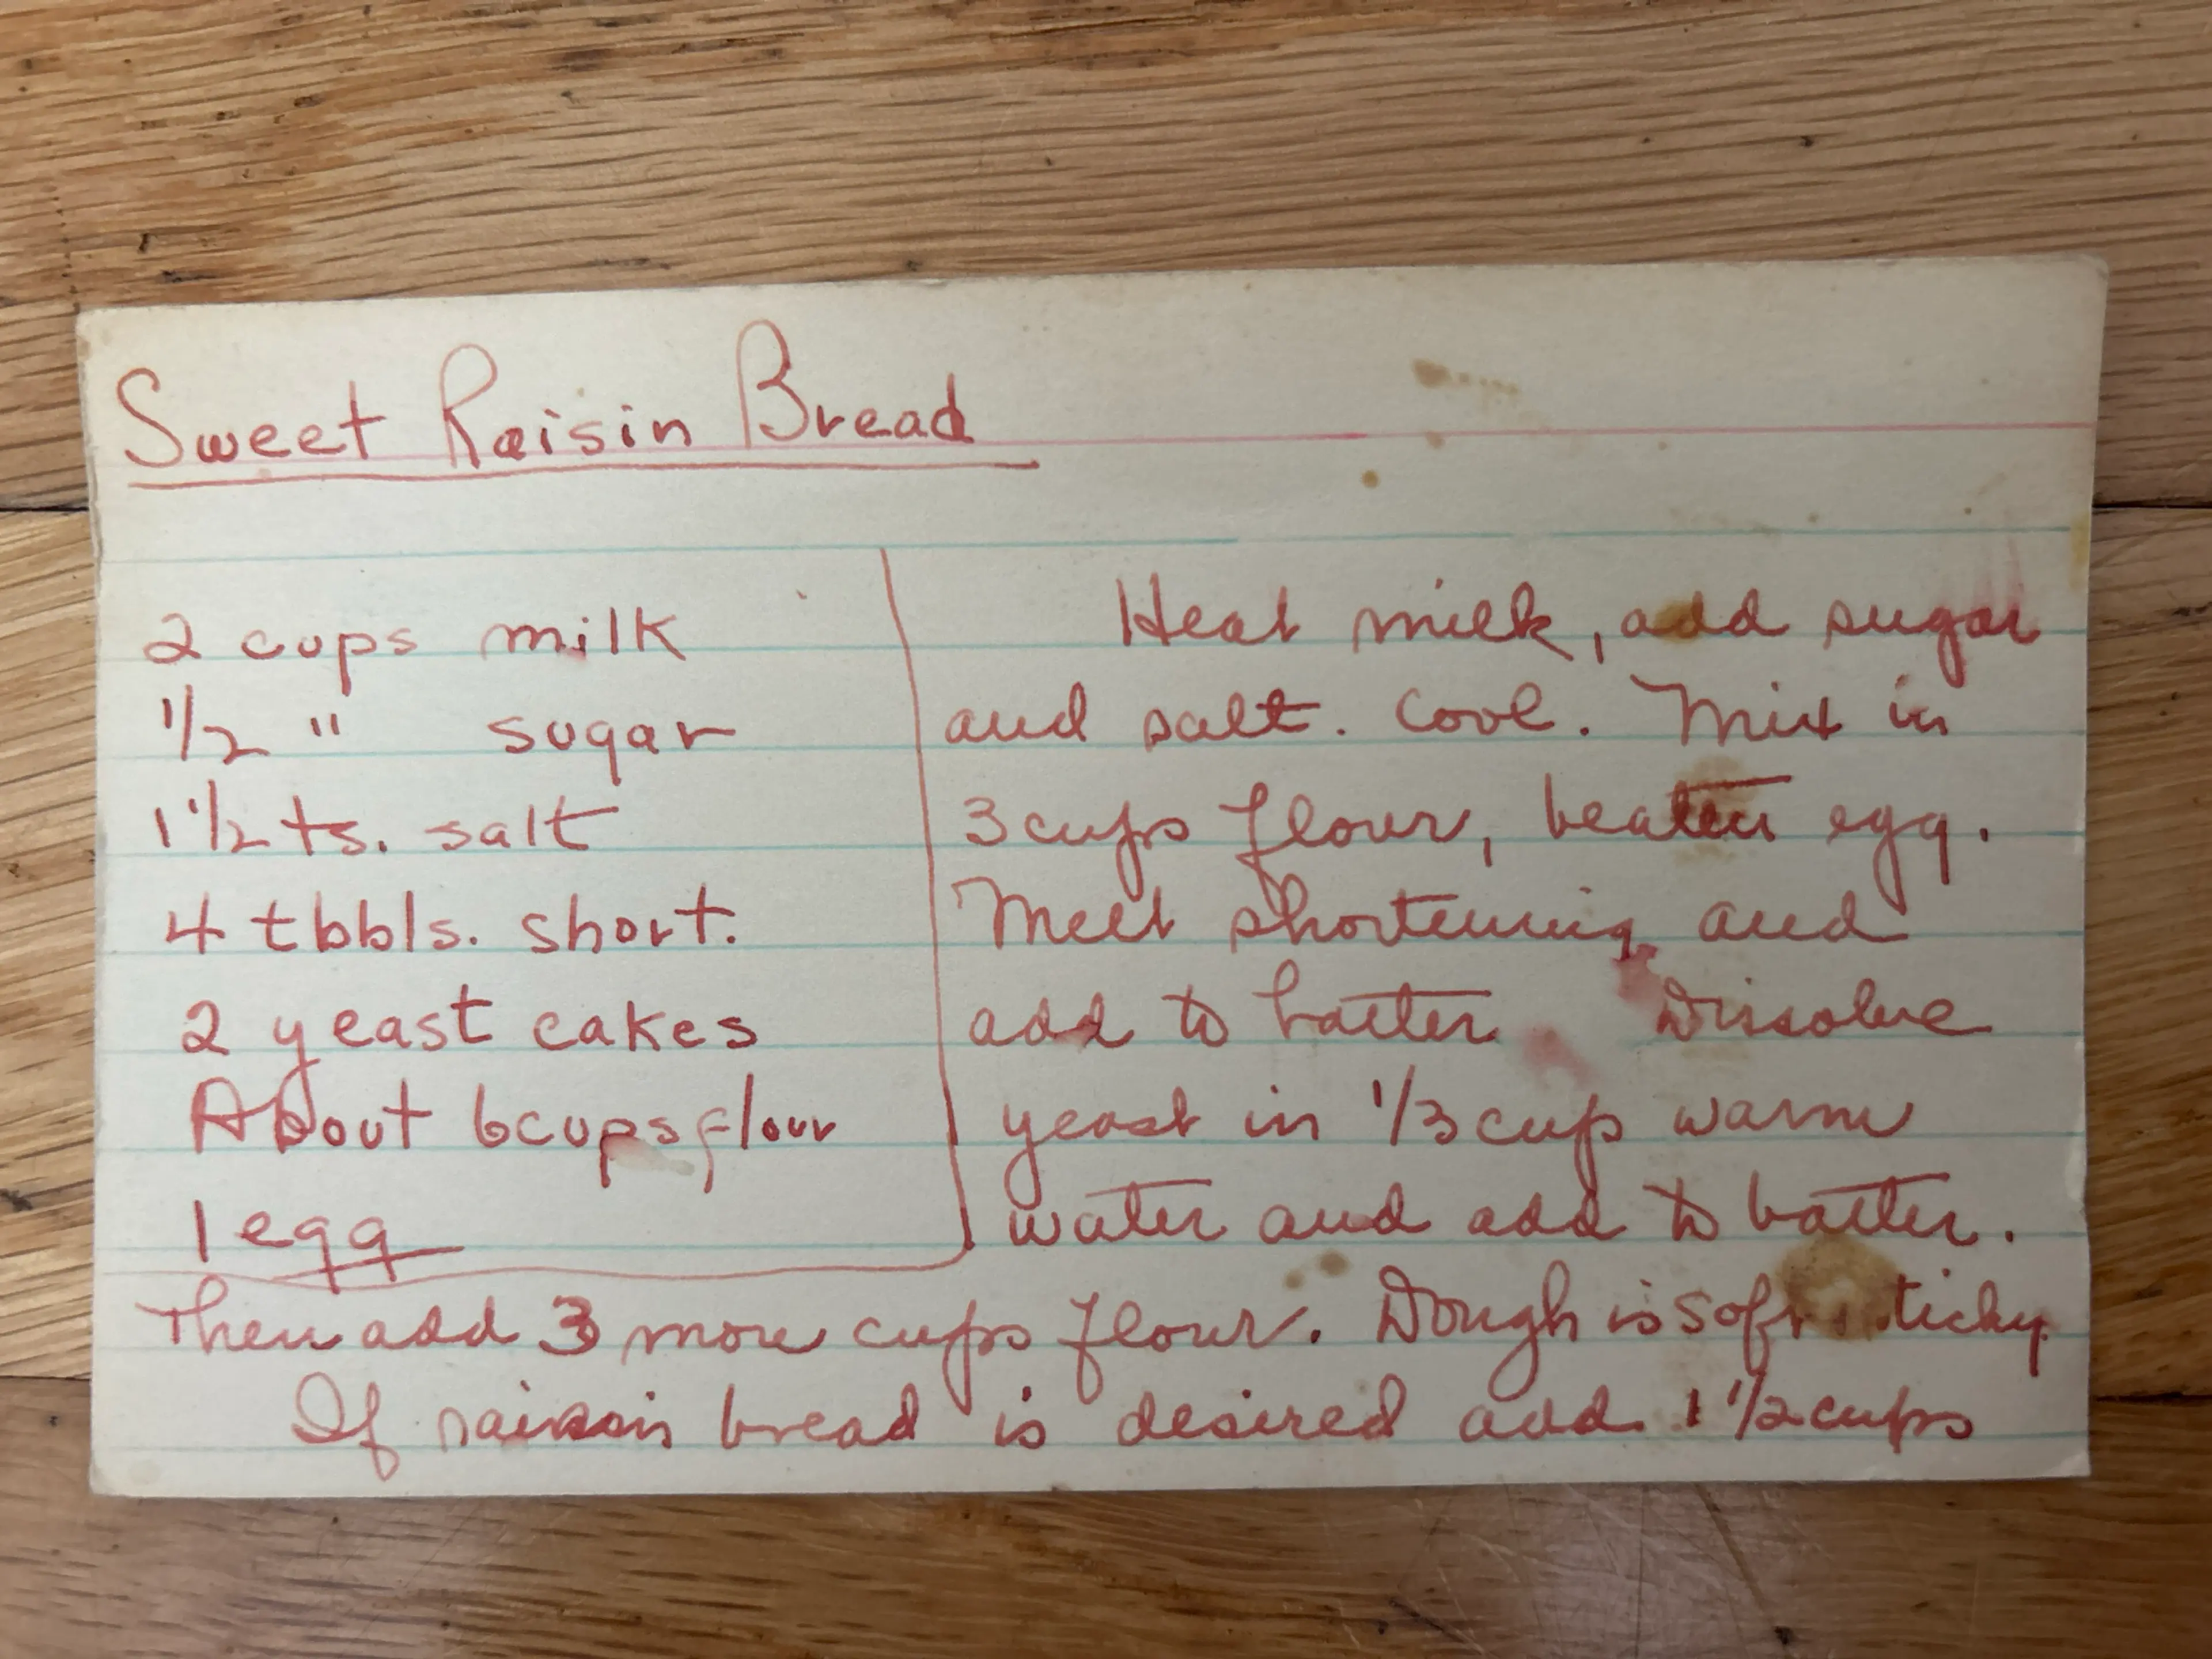 Sweet Raisin Bread
2 cups milk
1/2 " sugar
1 1/2 ts. salt
4 tbbls. short.
2 yeast cakes
About 6 cups flour
1 egg
Heat milk, add sugar
and salt. Cool. Mix in
3 cups flour, beaten egg.
Melt shortening and
add to batter Dissolve
yeast in 1/3 cup warm
water and add to batter.
Then add 3 more cups flour. Dough is soft
If raisin bread is desired add 1 1/2 cups